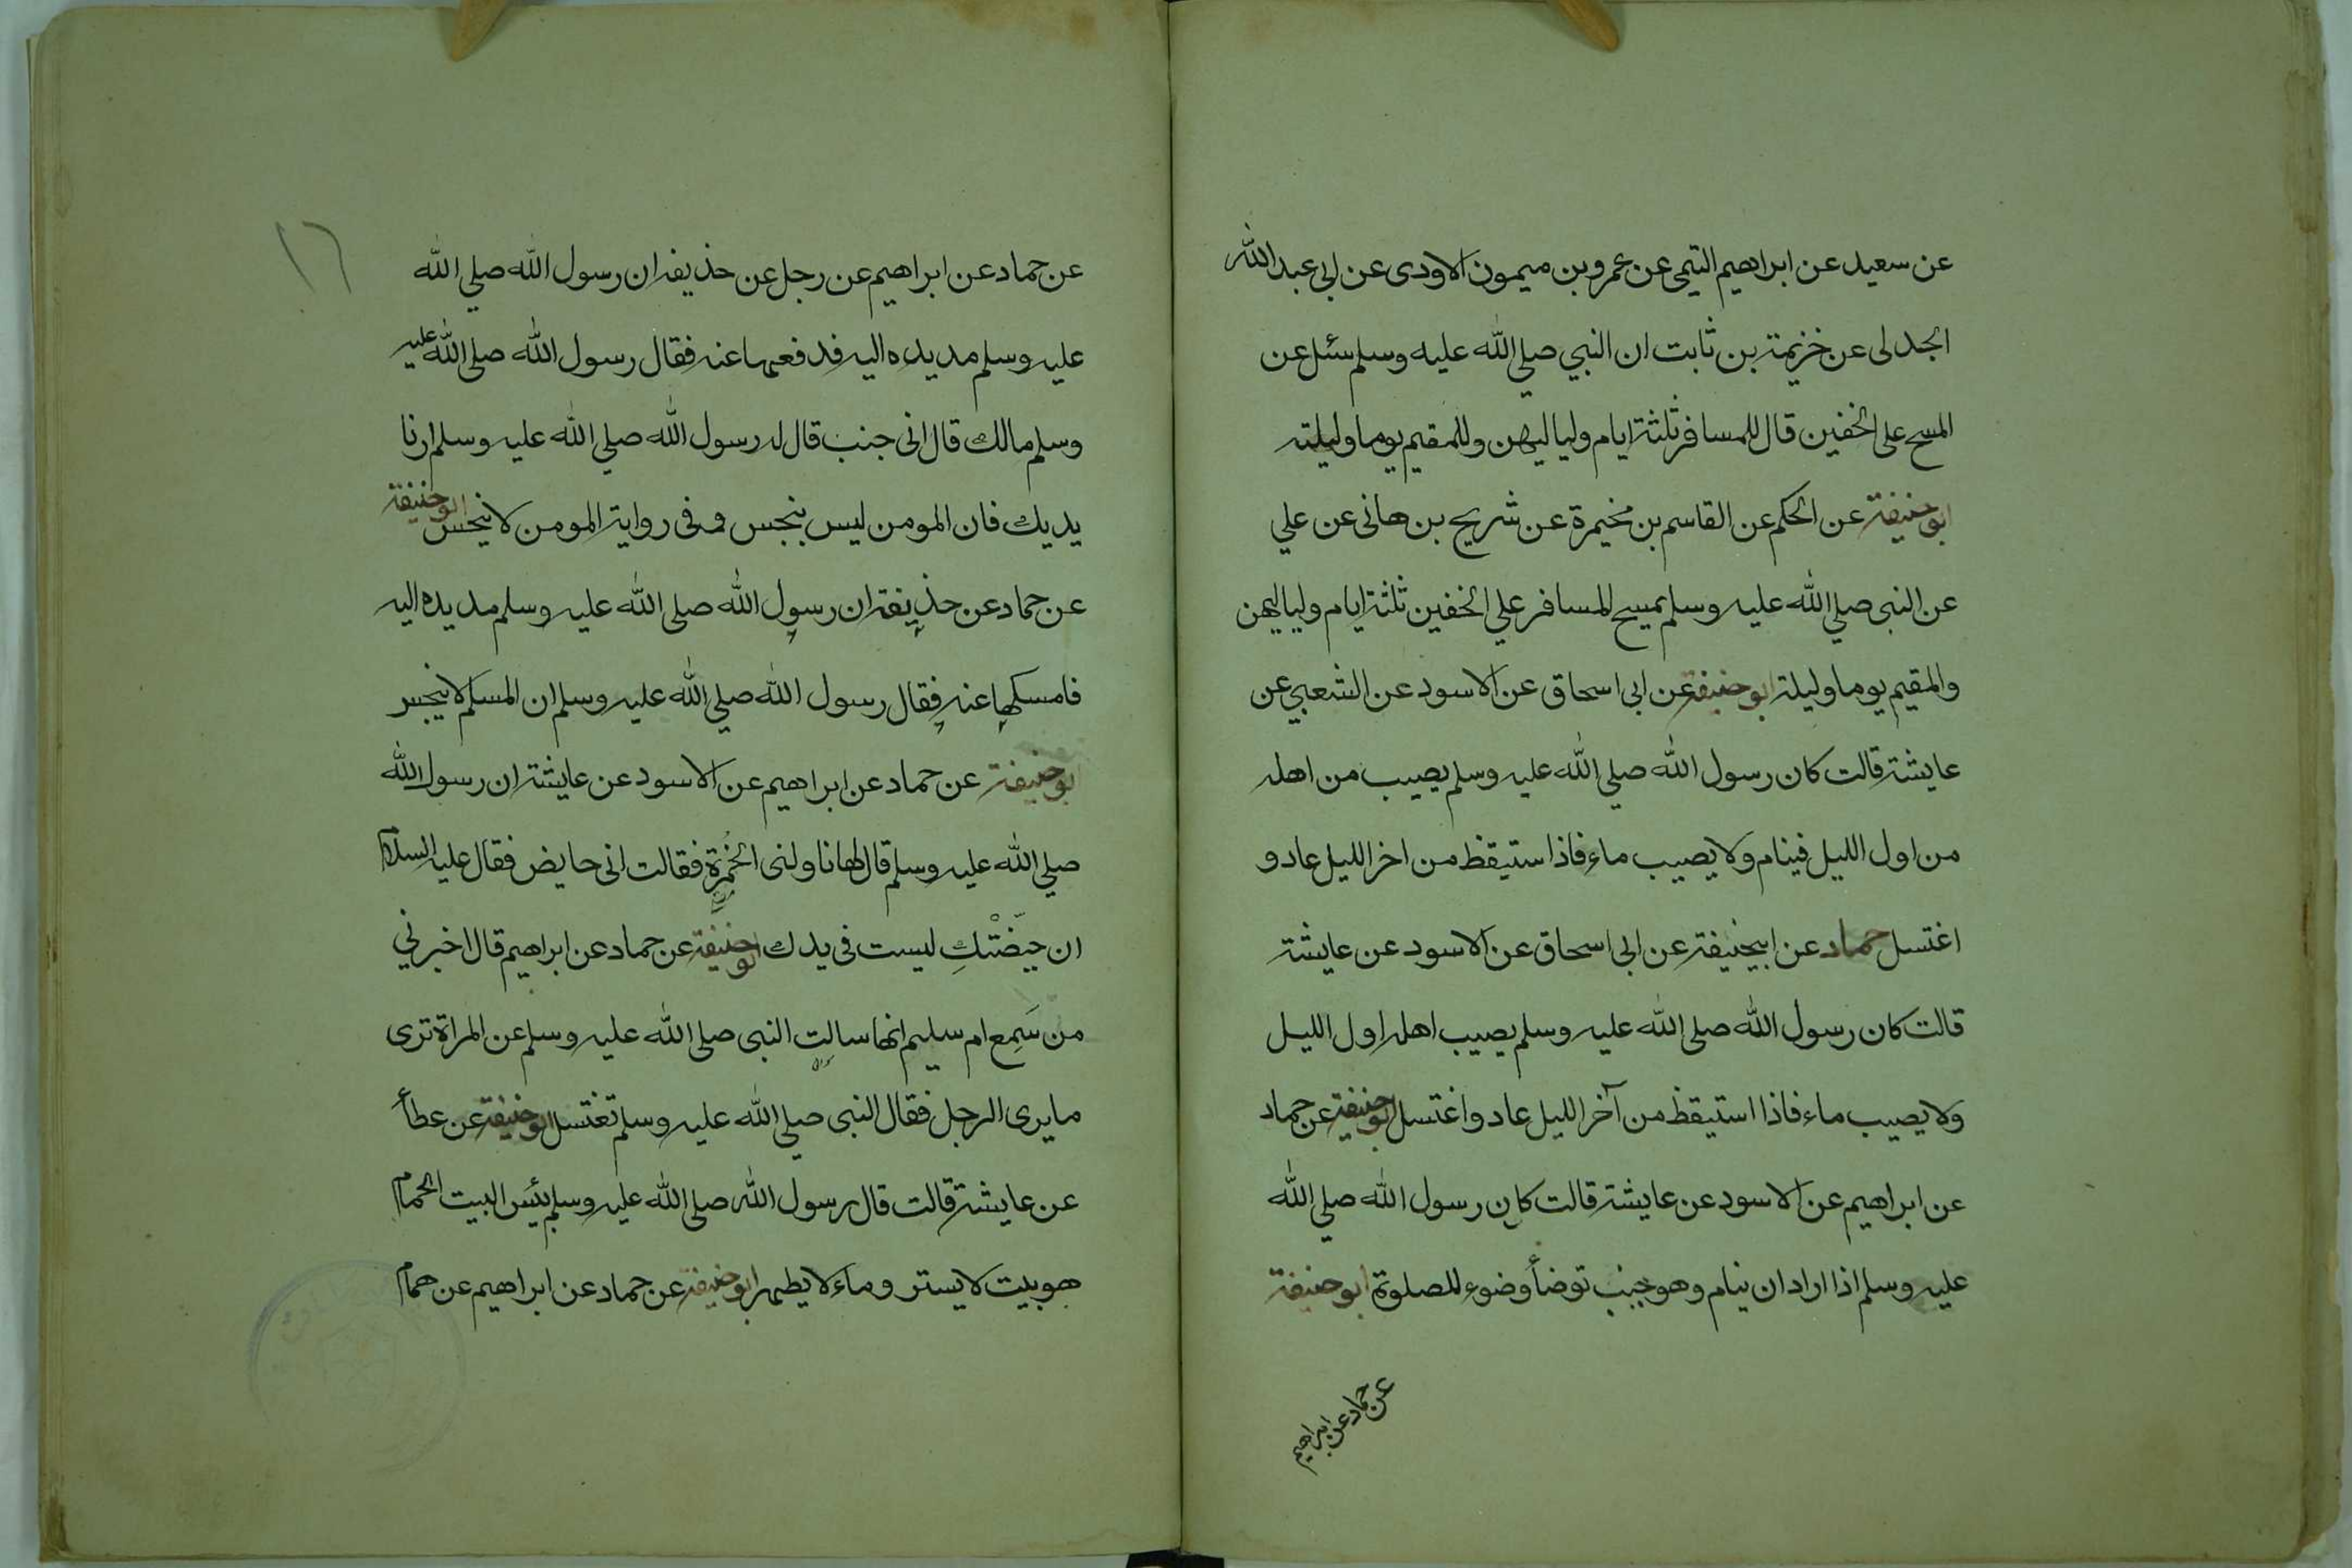 عن سعيد عن ابراهيم التيمى عن عمرو بن ميمون الاودى عن ابى عبد الله
الجدلى عن خزيمة بن ثابت ان النبي صلي الله عليه وسلم سئل عن
المسح على الخفين قال للمسافر ثلثة ايام ولياليهن وللمقيم يوما وليلته
ابو حنيفة عن الحكم عن القاسم بن مخيمرة عن شريح بن هانى عن علي
عن النبى صلي الله عليه وسلم يمسح المسافر علي الخفين ثلثة ايام ولياليهن
والمقيم يوما وليلة ابو حنيفة عن ابى اسحاق عن الاسود عن الشعبي عن
عايشة قالت كان رسول الله صلي الله عليه وسلم يصيب من اهله
من اول الليل فينام ولا يصيب ماء فاذا ستيقظ من اخر الليل عاد و
اغتسل حماد عن ابيحنيفة عن ابى اسحاق عن الاسود عن عايشة
قالت كان رسول الله صلى الله عليه وسلم يصيب اهله اول الليل
ولا يصيب ماء فاذا استيقظ من آخر الليل عاد واغتسل ابو حنيفة عن حماد
عن ابراهيم عن الاسود عن عايشة قالت كان رسول الله صلي الله
عليه وسلم اذا اراد ان ينام وهو جنب توضأ وضوء للصلوة ابو حنيفة
عن حماد عن ابراهيم
١٦
عن حماد عن ابراهيم عن رجل عن حذيفه ان رسول الله صلي الله
عليه وسلم مد يده اليه فدفعها عنه فقال رسول الله صلى الله عليه
وسلم مالك قال انى جنب قال له رسول الله صلي الله عليه وسلم ارنا
يديك فان المومن ليس بنجس وفى رواية المومن لا ينجس ابو حنيفة
عن حماد عن حذيفة ان رسول الله صلى الله عليه وسلم مد يده اليه
فامسكها عنه فقال رسول الله صلي الله عليه وسلم ان المسلم لا ينجس
ابو حنيفة عن حماد عن ابراهيم عن الاسود عن عايشة ان رسول الله
صلي الله عليه وسلم قال لها ناولنى الخُمْرة فقالت انى حايض فقال عليه السلام
ان حيّضْتَكِ ليست فى يدك ابو حنيفة عن حماد عن ابراهيم قال اخبرني
من سَمِع ام سليم انها سالت النبى صلى الله عليه وسلم عن المراة ترى
ما يرى الرجل فقال النبى صلي الله عليه وسلم تغتسل ابو حنيفة عن عطأ
عن عايشة قالت قال رسول الله صلى الله عليه وسلم بئس البيت الحمام
هو بيت لا يستر وماء لا يطهر ابو حنيفة عن حماد عن ابراهيم عن همام